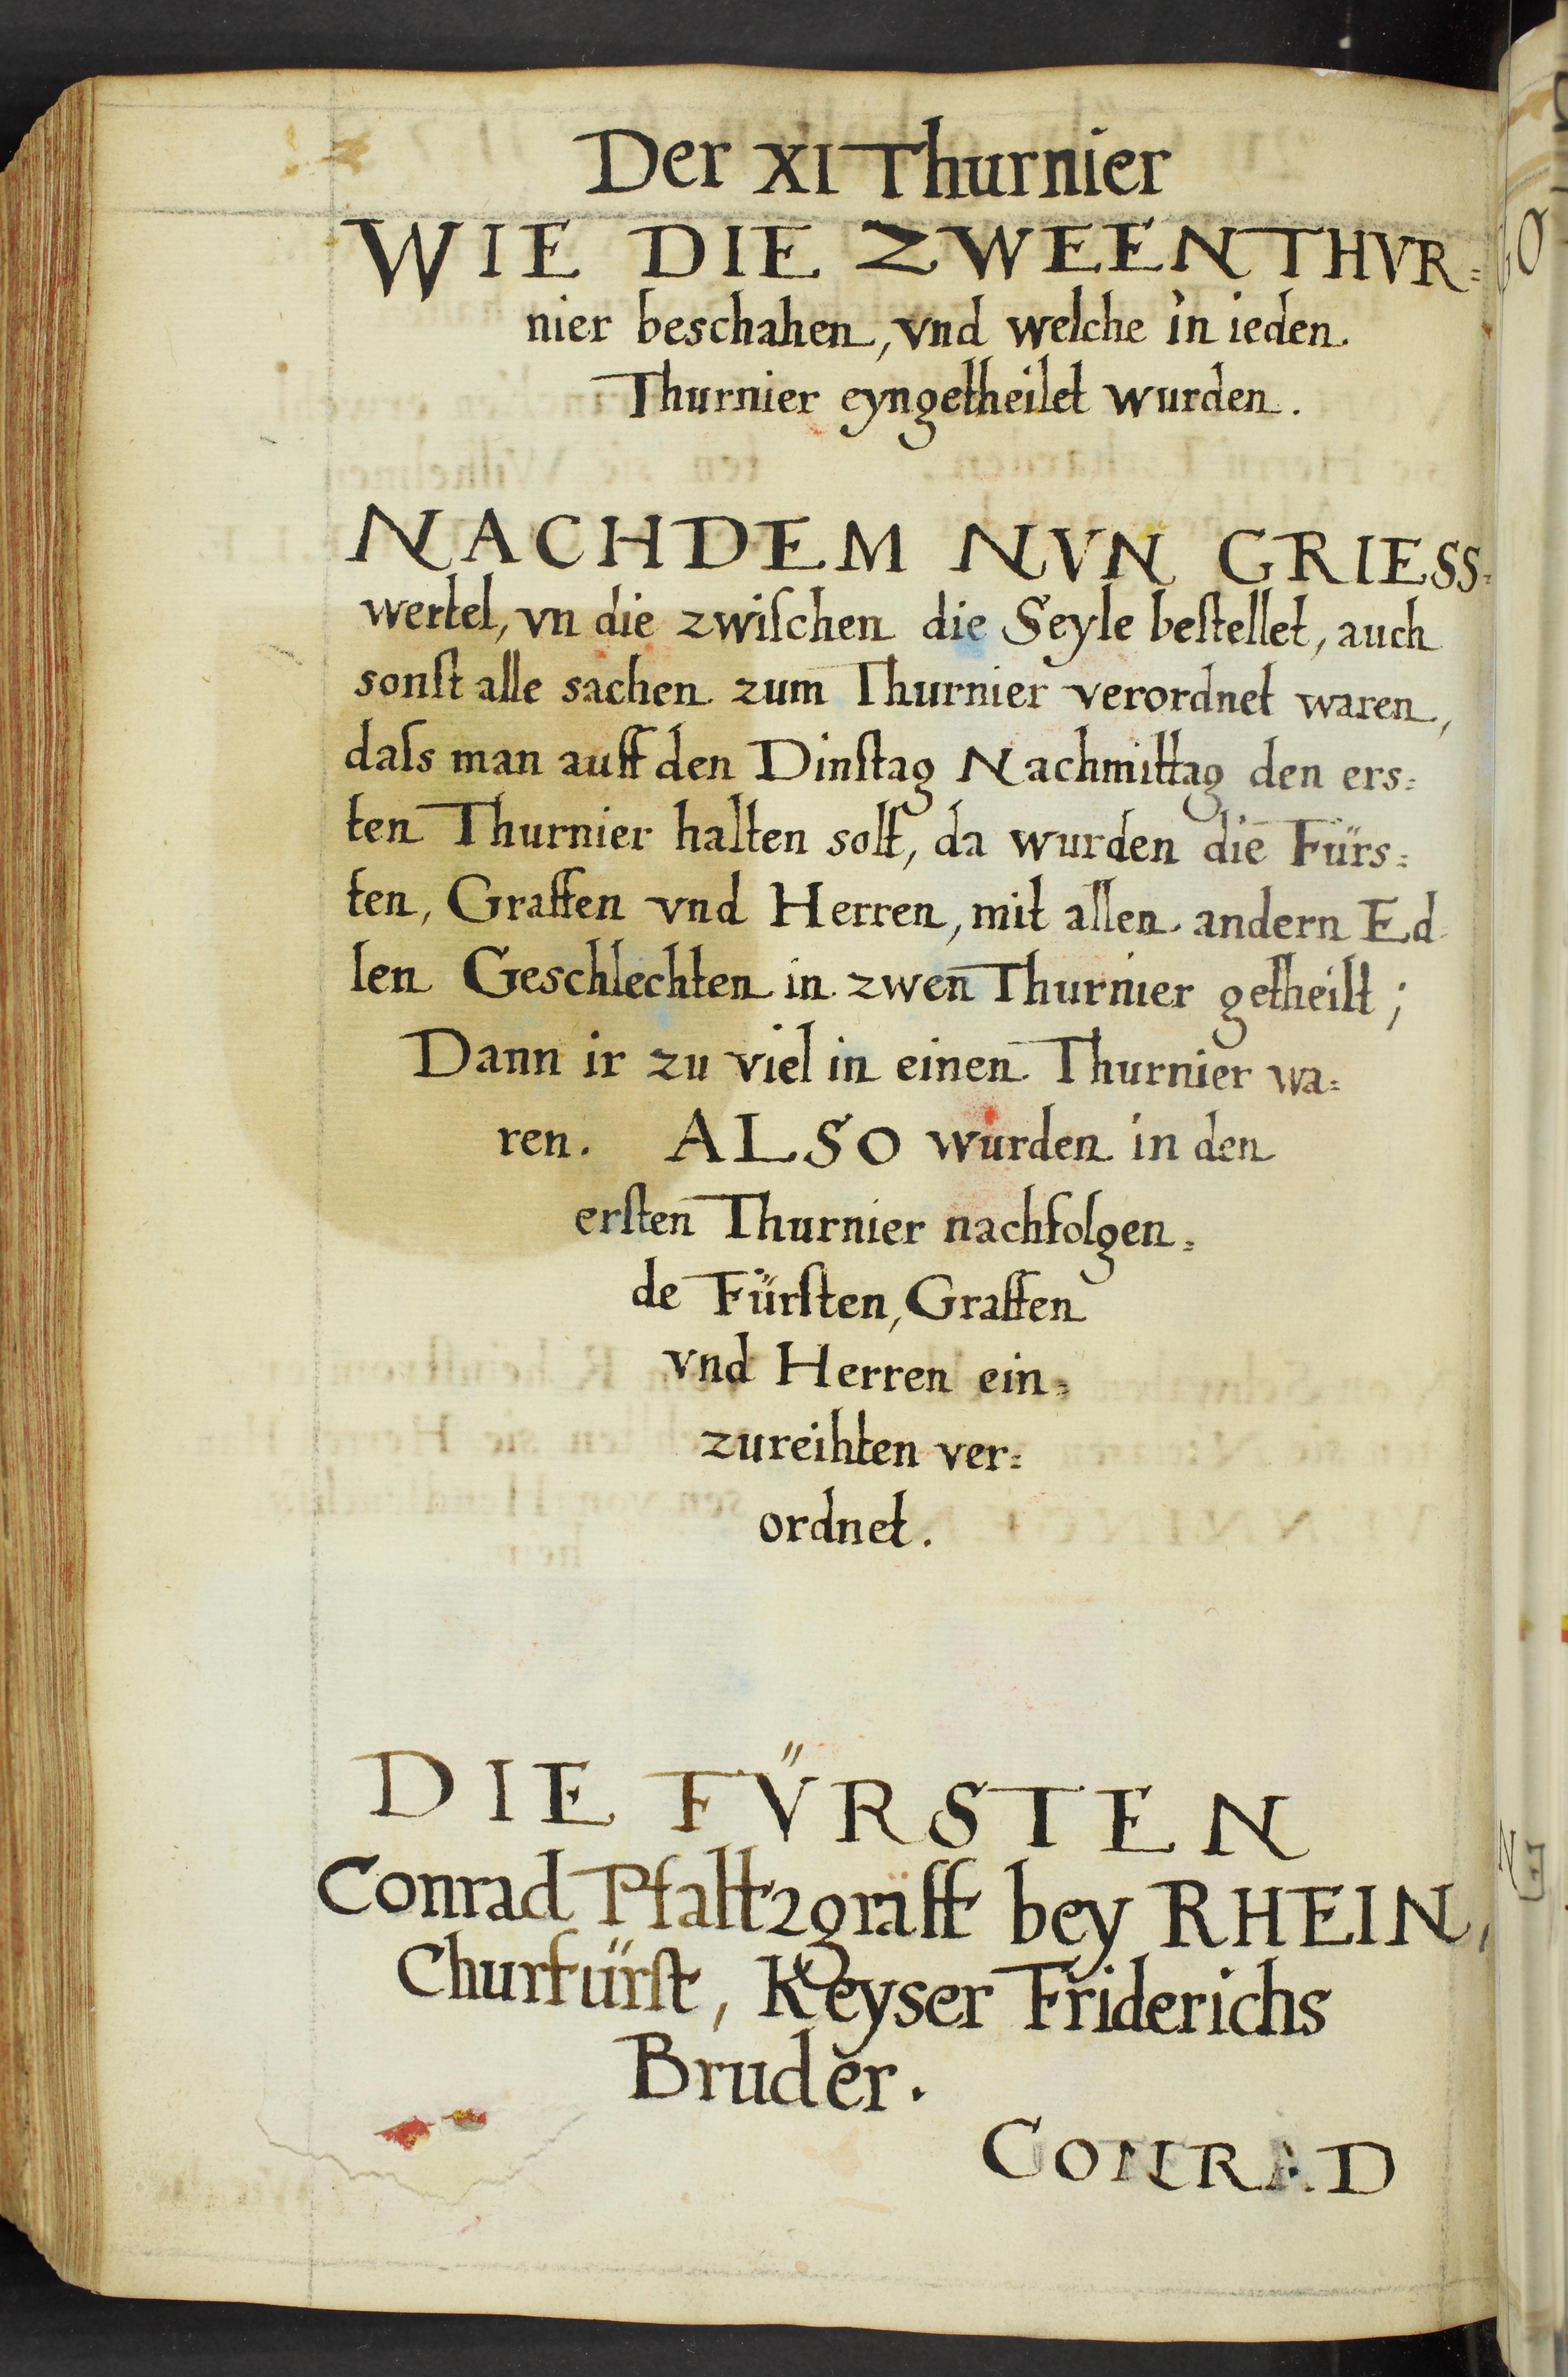 Der XI Thurnier
WIE DIE ZWEEN THVR=
nier beschahen, vnd welche in ieden
Thurnier eyngetheilet wurden.
NACHDEM NVN GRIESS=
wertel, vn die zwiſchen die Seyle beſtellet, auch
sonſt alle sachen zum Thurnier verordnet waren,
daſs man auff den Dinſtag Nachmittag den ers=
ten Thurnier halten solt, da wurden die Fürs=
ten, Graffen vnd Herren, mit allen andern Ed=
len Geschlechten in zwen Thurnier getheilt;
Dann ir zu viel in einen Thurnier wa=
ren. ALSO wurden in den
erſten Thurnier nachfolgen=
de Fürſten, Graffen
vnd Herren ein=
zureihten ver=
ordnet.
DIE FÜRSTEN
Conrad Pfaltzgraff bey RHEIN,
Churfürſt, Keyser Friderichs
Bruder.
CONRAD